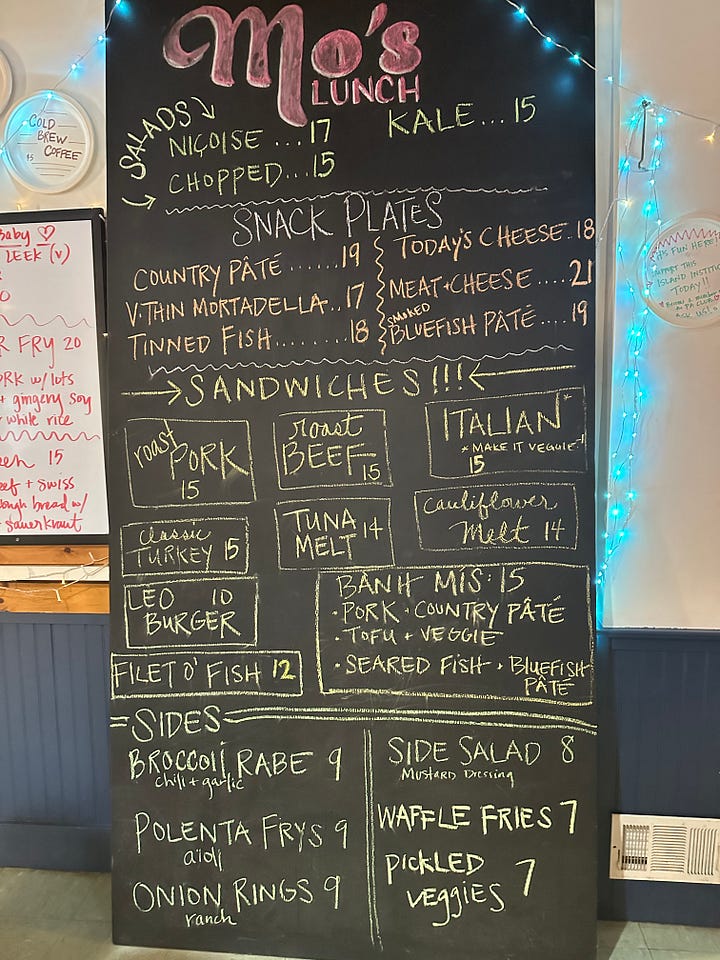 Mo's
LUNCH
SALADS
NIÇOISE ... 17
CHOPPED... 15
KALE... 15
SNACK PLATES
COUNTRY PÂTÉ ...... 19
V. THIN MORTADELLA.. 17
TINNED FISH ........ 18
TODAY'S CHEESE.. 18
MEAT + CHEESE ..... 21
SMOKED
BLUEFISH PÂTÉ .... 19
SANDWICHES!!!
roast PORK
15
roast
BEEF 15
ITALIAN*
*MAKE IT VEGGIE!
15
classic
TURKEY 15
TUNA 14
MELT
cauliflower
Melt 14
LEO 10
BURGER
FILET O' FISH 12
BÁNH MÌS · 15
· PORK + COUNTRY PÂTÉ
· TOFU + VEGGIE
· SEARED FISH + BLUEFISH
PÂTÉ
SIDES
BROCCOLI RABE 9
chili + garlic
POLENTA FRYS 9
aïoli
ONION RINGS 9
ranch
SIDE SALAD 8
Mustard Dressing
WAFFLE FRIES 7
PICKLED
VEGGIES 7
COLD
BREW
COFFEE
$5
Baby ♡
LEEK (v)
R FRY 20
w/ lots
+ gingery soy
white rice
15
+ swiss
bread w/
+ sauerkraut
IT'S FUN HERE!
SUPPORT THIS
ISLAND INSTITU
TODAY!!
ASK US!